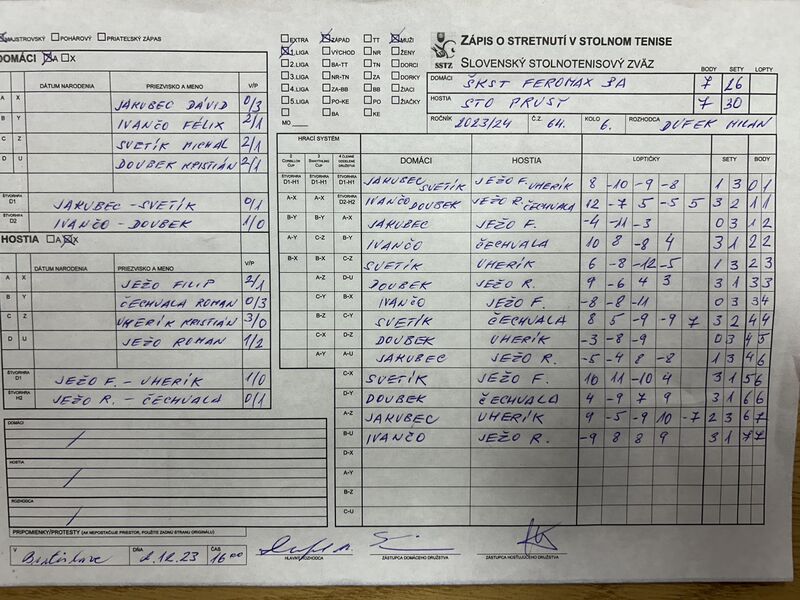 MAJSTROVSKÝ POHÁROVÝ PRIATEĽSKÝ ZÁPAS
DOMÁCI A X
DÁTUM NARODENIA PRIEZVISKO A MENO V/P
A X JAKUBEC DÁVID 0/3
B Y IVANČO FÉLIX 2/1
C Z SVETÍK MICHAL 2/1
D U DOUBEK KRISTIÁN 2/1
ŠTVORHRA D1 JAKUBEC - SVETÍK 0/1
D2 IVANČO - DOUBEK 1/0
HOSTIA A X
DÁTUM NARODENIA PRIEZVISKO A MENO V/P
A X JEŽO FILIP 2/1
B Y ČECHVALA ROMAN 0/3
C Z UHERÍK KRISTIÁN 3/0
D U JEŽO ROMAN 1/2
ŠTVORHRA D1 JEŽO F. - UHERÍK 1/0
ŠTVORHRA H2 JEŽO R. - ČECHVALA 0/1
DOMÁCI
HOSTIA
ROZHODCA
PRIPOMIENKY/PROTESTY (AK NEPOSTAČUJE PRIESTOR, POUŽITE ZADNÚ STRANU ORIGINÁLU)
V DŇA 2.12.23 ČAS 16 00
EXTRA ZÁPAD TT MUŽI
1.LIGA VÝCHOD NR ŽENY
2.LIGA BA-TT TN DORCI
3.LIGA NR-TN ZA DORKY
4.LIGA ZA-BB BB ŽIACI
5.LIGA PO-KE PO ŽIAČKY
BA KE
MO
SSTZ
ZÁPIS O STRETNUTÍ V STOLNOM TENISE
SLOVENSKÝ STOLNOTENISOVÝ ZVÄZ
BODY SETY LOPTY
DOMÁCI ŠKST FEROMAX 3A 7 26
HOSTIA STO PRUSY 7 30
ROČNÍK 2023/24 Č.Z. 64. KOLO 6. ROZHODCA DUFEK MILAN
HRACÍ SYSTÉM
DOMÁCI HOSTIA LOPTIČKY SETY BODY
ŠTVORHRA D1-H1 ŠTVORHRA D1-H1 ŠTVORHRA D1-H1 JAKUBEC SVETÍK JEŽO F. UHERÍK 8 -10 -9 -8 1 3 0 1
A-X A-X ŠTVORHRA D2-H2 IVANČO DOUBEK JEŽO R. ČECHVALA 12 -7 5 -5 5 3 2 1 1
B-Y B-Y A-X JAKUBEC JEŽO F. -4 -11 -3 0 3 1 2
A-Y C-Z B-Y IVANČO ČECHVALA 10 8 -8 4 3 1 2 2
B-X B-X C-Z SVETÍK UHERÍK 6 -8 -12 -5 1 3 2 3
A-Z D-U DOUBEK JEŽO R. 9 -6 4 3 3 1 3 3
C-Y B-X IVANČO JEŽO F. -8 -8 -11 0 3 3 4
B-Z C-Y SVETÍK ČECHVALA 8 5 -9 -9 7 3 2 4 4
C-X D-Z DOUBEK UHERÍK -3 -8 -9 0 3 4 5
A-Y A-U JAKUBEC JEŽO R. -5 -4 8 -8 1 3 4 6
C-X SVETÍK JEŽO F. 10 11 -10 4 3 1 5 6
D-Y DOUBEK ČECHVALA 4 -9 7 9 3 1 6 6
A-Z JAKUBEC UHERÍK 9 -5 -9 10 -7 2 3 6 7
B-U IVANČO JEŽO R. -9 8 8 9 3 1 7 7
D-X
A-Y
B-Z
C-U
HLAVNÝ ROZHODCA ZÁSTUPCA DOMÁCEHO DRUŽSTVA ZÁSTUPCA HOSŤUJÚCEHO DRUŽSTVA